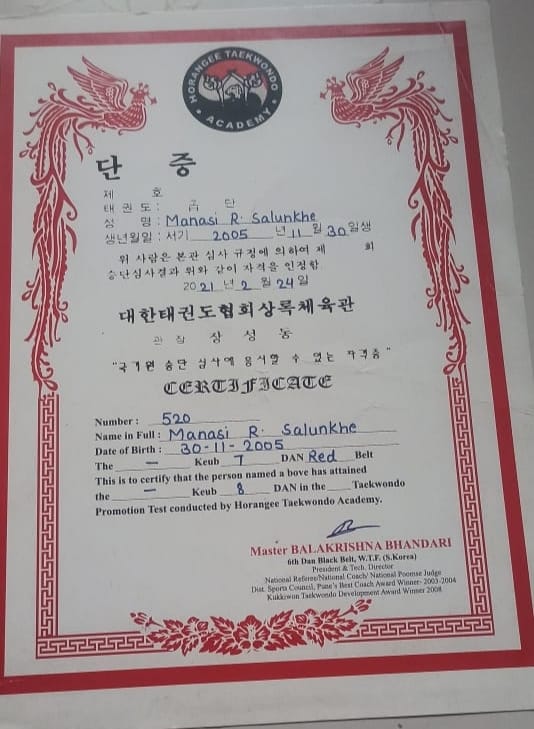 HORANGEE TAEKWONDO
ACADEMY
단 증
제 호
태권도 : 급 단
성 명 : Manasi R. Salunkhe
생년월일 : 서기 2005 년 11 월 30 일생
위 사람은 본관 심사 규정에 의하여 제 회
승단심사결과 위와 같이 자격을 인정함
2021 년 2 월 24 일
대한태권도협회상록체육관
관 장 장 성 동
"국기원 승단 심사에 응시할 수 있는 자격증"
CERTIFICATE
Number : 520
Name in Full : Manasi R. Salunkhe
Date of Birth : 30-11-2005
The - Keub 7 DAN Red Belt
This is to certify that the person named a bove has attained
the - Keub 8 DAN in the Taekwondo
Promotion Test conducted by Horangee Taekwondo Academy.
Master BALAKRISHNA BHANDARI
6th Dan Black Belt, W.T.F. (S.Korea)
President & Tech. Director
National Referee/National Coach/ National Poomse Judge
Dist. Sports Council, Pune's Best Coach Award Winner- 2003-2004
Kukkiwon Taekwondo Development Award Winner 2008